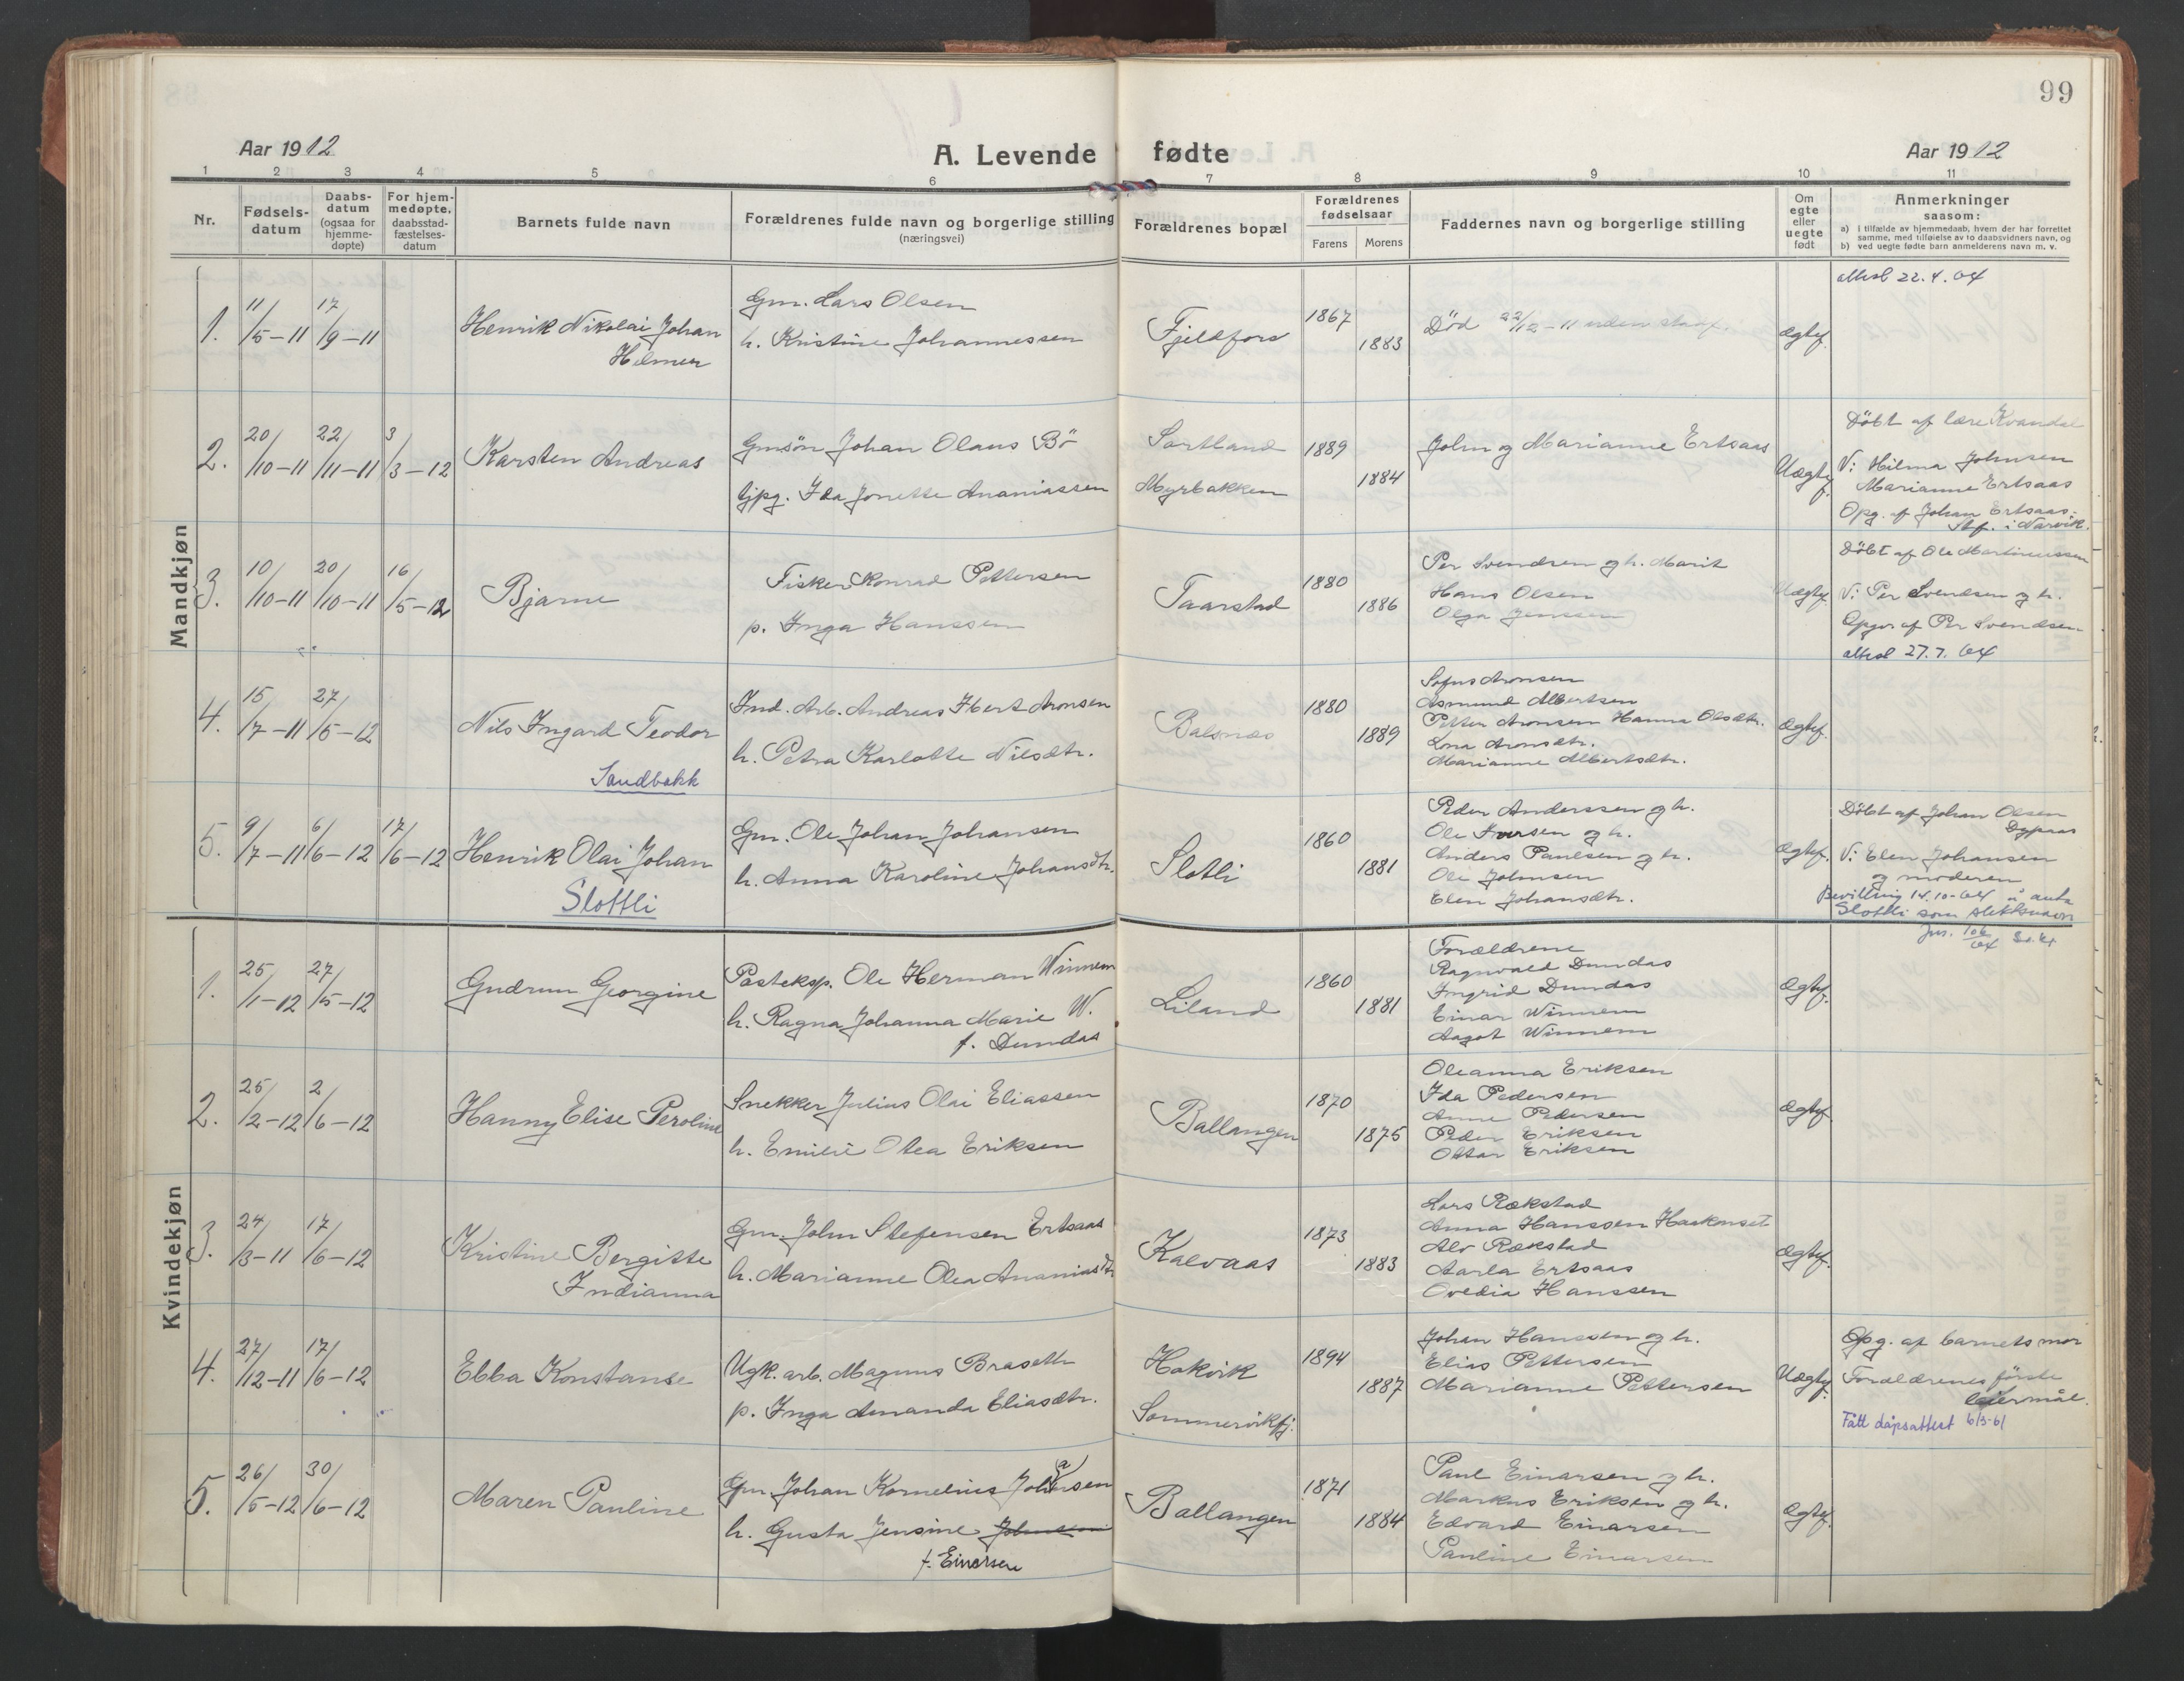 99
Aar 1912
A. Levende fødte
Aar 1912
1 2 3 4 5 6 7 8 9 10 11
Nr.
Fødsels-
datum
Daabs-
datum
(ogsaa for
hjemme-
døpte)
For hjem-
medøpte,
daabsstad-
fæstelses-
datum
Barnets fulde navn
Forældrenes fulde navn og borgerlige stilling
(næringsvei)
Forældrenes bopæl
Forældrenes
fødselsaar
Farens Morens
Faddernes navn og borgerlige stilling
Om
egte
eller
uegte
født
Anmerkninger
saasom:
a) i tilfælde av hjemmedaab, hvem der har forrettet
samme, med tilføielse av to daabsvidners navn, og
b) ved uegte fødte barn anmelderens navn m. v.
Mandkjøn
1. 11/5-11 17/9-11
Henrik Nikolai Johan
Helmer
Gm. Lars Olsen
h. Kristine Johannessen
Fjeldfors
1867
1883
Død 22/12-11 uden
Ægtef.
22.4.64
2. 20/10-11 22/11-11 3/3-12
Karsten Andreas
Gmsön Johan Olaus Bö
tjpg. Ida Jonette Ananiassen
Sortland
Myrbakken
1889
1884
John og Marianne Ertsaas
Uægtef.
Döbt af lære Kvandal
V: Hilma Johnsen
Marianne Ertsaas
Opg. af Johan Ertsaas.
Stf. i Narvik.
3. 10/10-11 20/10-11 16/5-12
Bjarne
Fisker Konrad Pettersen
p. Inga Hanssen
Taarstad
1880
1886
Per Svendsen og h. Marit
Hans Olsen
Olga Jenssen
Uægtef.
Döbt af Ole Martinussen
V: Per Svendsen og h.
Opgor af Per Svendsen
27.7.64
4. 15/7-11 27/5-12
Nils Ingard Teodor
Sandbakk
Ind. Arb. Andreas Hert Aronsen
h. Petra Karlotte Nilsdtr.
Balsnæs
1880
1889
Sofus Aronsen
Asmund Albertsen
Petter Aronsen Hanna Olsdtr.
Lona Aronsdtr.
Marianne Albertsdtr.
Ægtef.
5. 9/7-11 6/6-12 17/6-12
Henrik Olai Johan
Slottli
Gm. Ole Johan Johansen
h. Anna Karoline Johansdtr.
Slotli
1860
1881
Peder Anderssen og h.
Ole Iversen og h.
Anders Paulsen og h.
Ole Johnsen
Elen Johansdtr.
Ægtef.
Döbt af Johan Olsen
Dypaas
V: Elen Johansen
og moderen
Bevilling 14.10-64 å anta
Slottli som slektsnavn
Jnr. 106/64
Kvindekjøn
1. 25/1-12 27/5-12
Gudrun Georgine
Posteksp. Ole Herman Winnem
h. Ragna Johanna Marie W.
f. Dundas
Liland
1860
1881
Forældrene
Ragnvald Dundas
Ingrid Dundas
Einar Winnem
Aagot Winnem
Ægtef.
2. 25/2-12 2/6-12
Hanny Elise Peroline
Snekker Julius Olai Eliassen
h. Emilie Olea Eriksen
Ballangen
1870
1875
Oleanna Eriksen
Ida Pedersen
Anne Pedersen
Peder Eriksen
Ottar Eriksen
Ægtef.
3. 24/3-11 17/6-12
Kristine Bergitte
Indianna
Gm. John Stefensen Ertsaas
h. Marianne Olea Ananiasdtr
Kalvaas
1873
1883
Lars Rækstad
Anna Hanssen
Alv Rækstad
Aarla Ertsaas
Ovedia Hanssen
Ægtef.
4. 27/12-11 17/6-12
Ebba Konstanse
Ugk. arb. Magnus Braseth
p. Inga Amanda Eliasdtr.
Hakvik
Sommervikfj.
1894
1887
Johan Hanssen og h.
Elias Pettersen
Marianne Pettersen
Uægtef.
Opg. af barnets mor
Forældrenes förste
leiermål.
Fått dåpsattest 6/3-61
5. 26/5-12 30/6-12
Maren Pauline
Gm. Johan Kornelius Johansen
h. Gusta Jensine Johnsen
f. Einarsen
Ballangen
1871
1884
Paul Einarsen og h.
Markus Eriksen og h.
Edvard Einarsen
Pauline Einarsen
Ægtef.